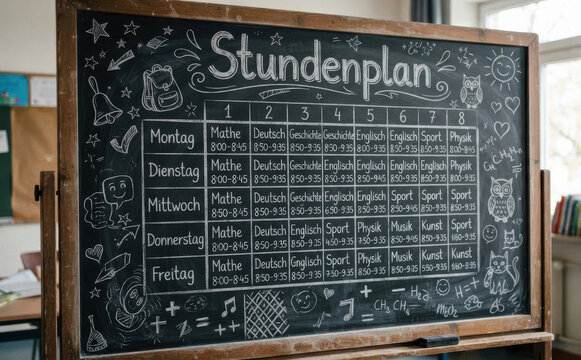 Stundenplan
1 2 3 4 5 6 7 8
Montag Mathe Deutsch Geschichte Geschichte Englisch Englisch Sport Physik
8:00-8:45 8:50-9:35 8:50-9:35 8:50-9:35 8:50-9:35 8:50-9:35 8:50-9:35 8:00-8:45
Dienstag Mathe Deutsch Geschichte Englisch Englisch Englisch Englisch Physik
8:00-8:45 8:50-9:35 8:50-9:35 8:50-9:35 8:50-9:35 8:50-9:35 8:50-9:35 8:00-8:45
Mittwoch Mathe Deutsch Geschichte Englisch Englisch Sport Sport Sport
8:00-8:45 8:50-9:35 8:50-9:35 8:50-9:35 8:50-9:35 8:50-9:35 8:50-9:35
Donnerstag Mathe Deutsch Englisch Sport Physik Musik Kunst Sport
8:00-8:45 8:50-9:35 8:50-9:35 8:50-9:35 8:50-9:35
Freitag Mathe Deutsch Englisch Sport Physik Musik Kunst Kunst
8:00-8:45 8:50-9:35 8:50-9:35 8:50-9:35 8:50-9:35
CH₂ CH₄ H₂O